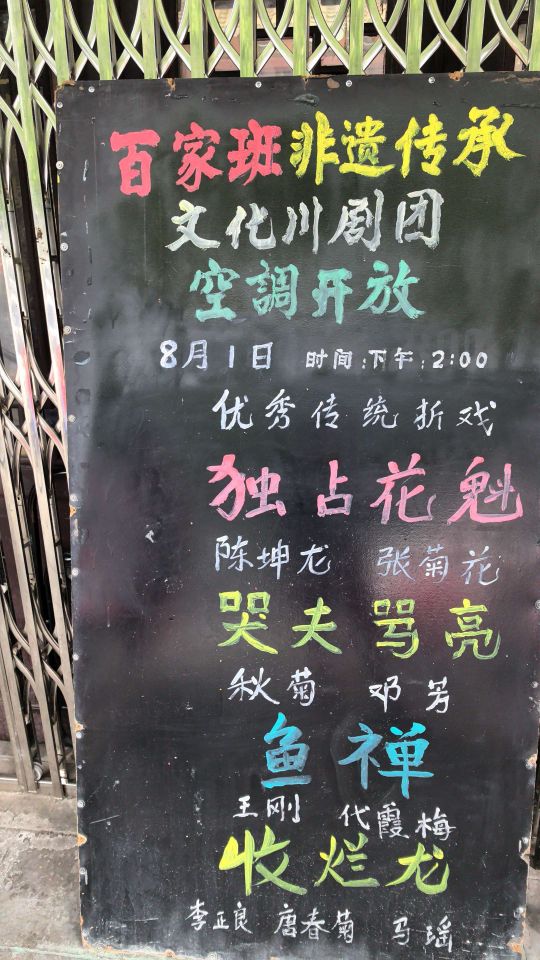 百家班非遗传承
文化川剧团
空調开放
8月1日 时间:下午:2:00
优秀传统折戏
独占花魁
陈坤龙 张菊花
哭夫骂亮
秋菊 邓芳
鱼禅
王刚 代霞梅
收烂龙
李正良 唐春菊 马瑶